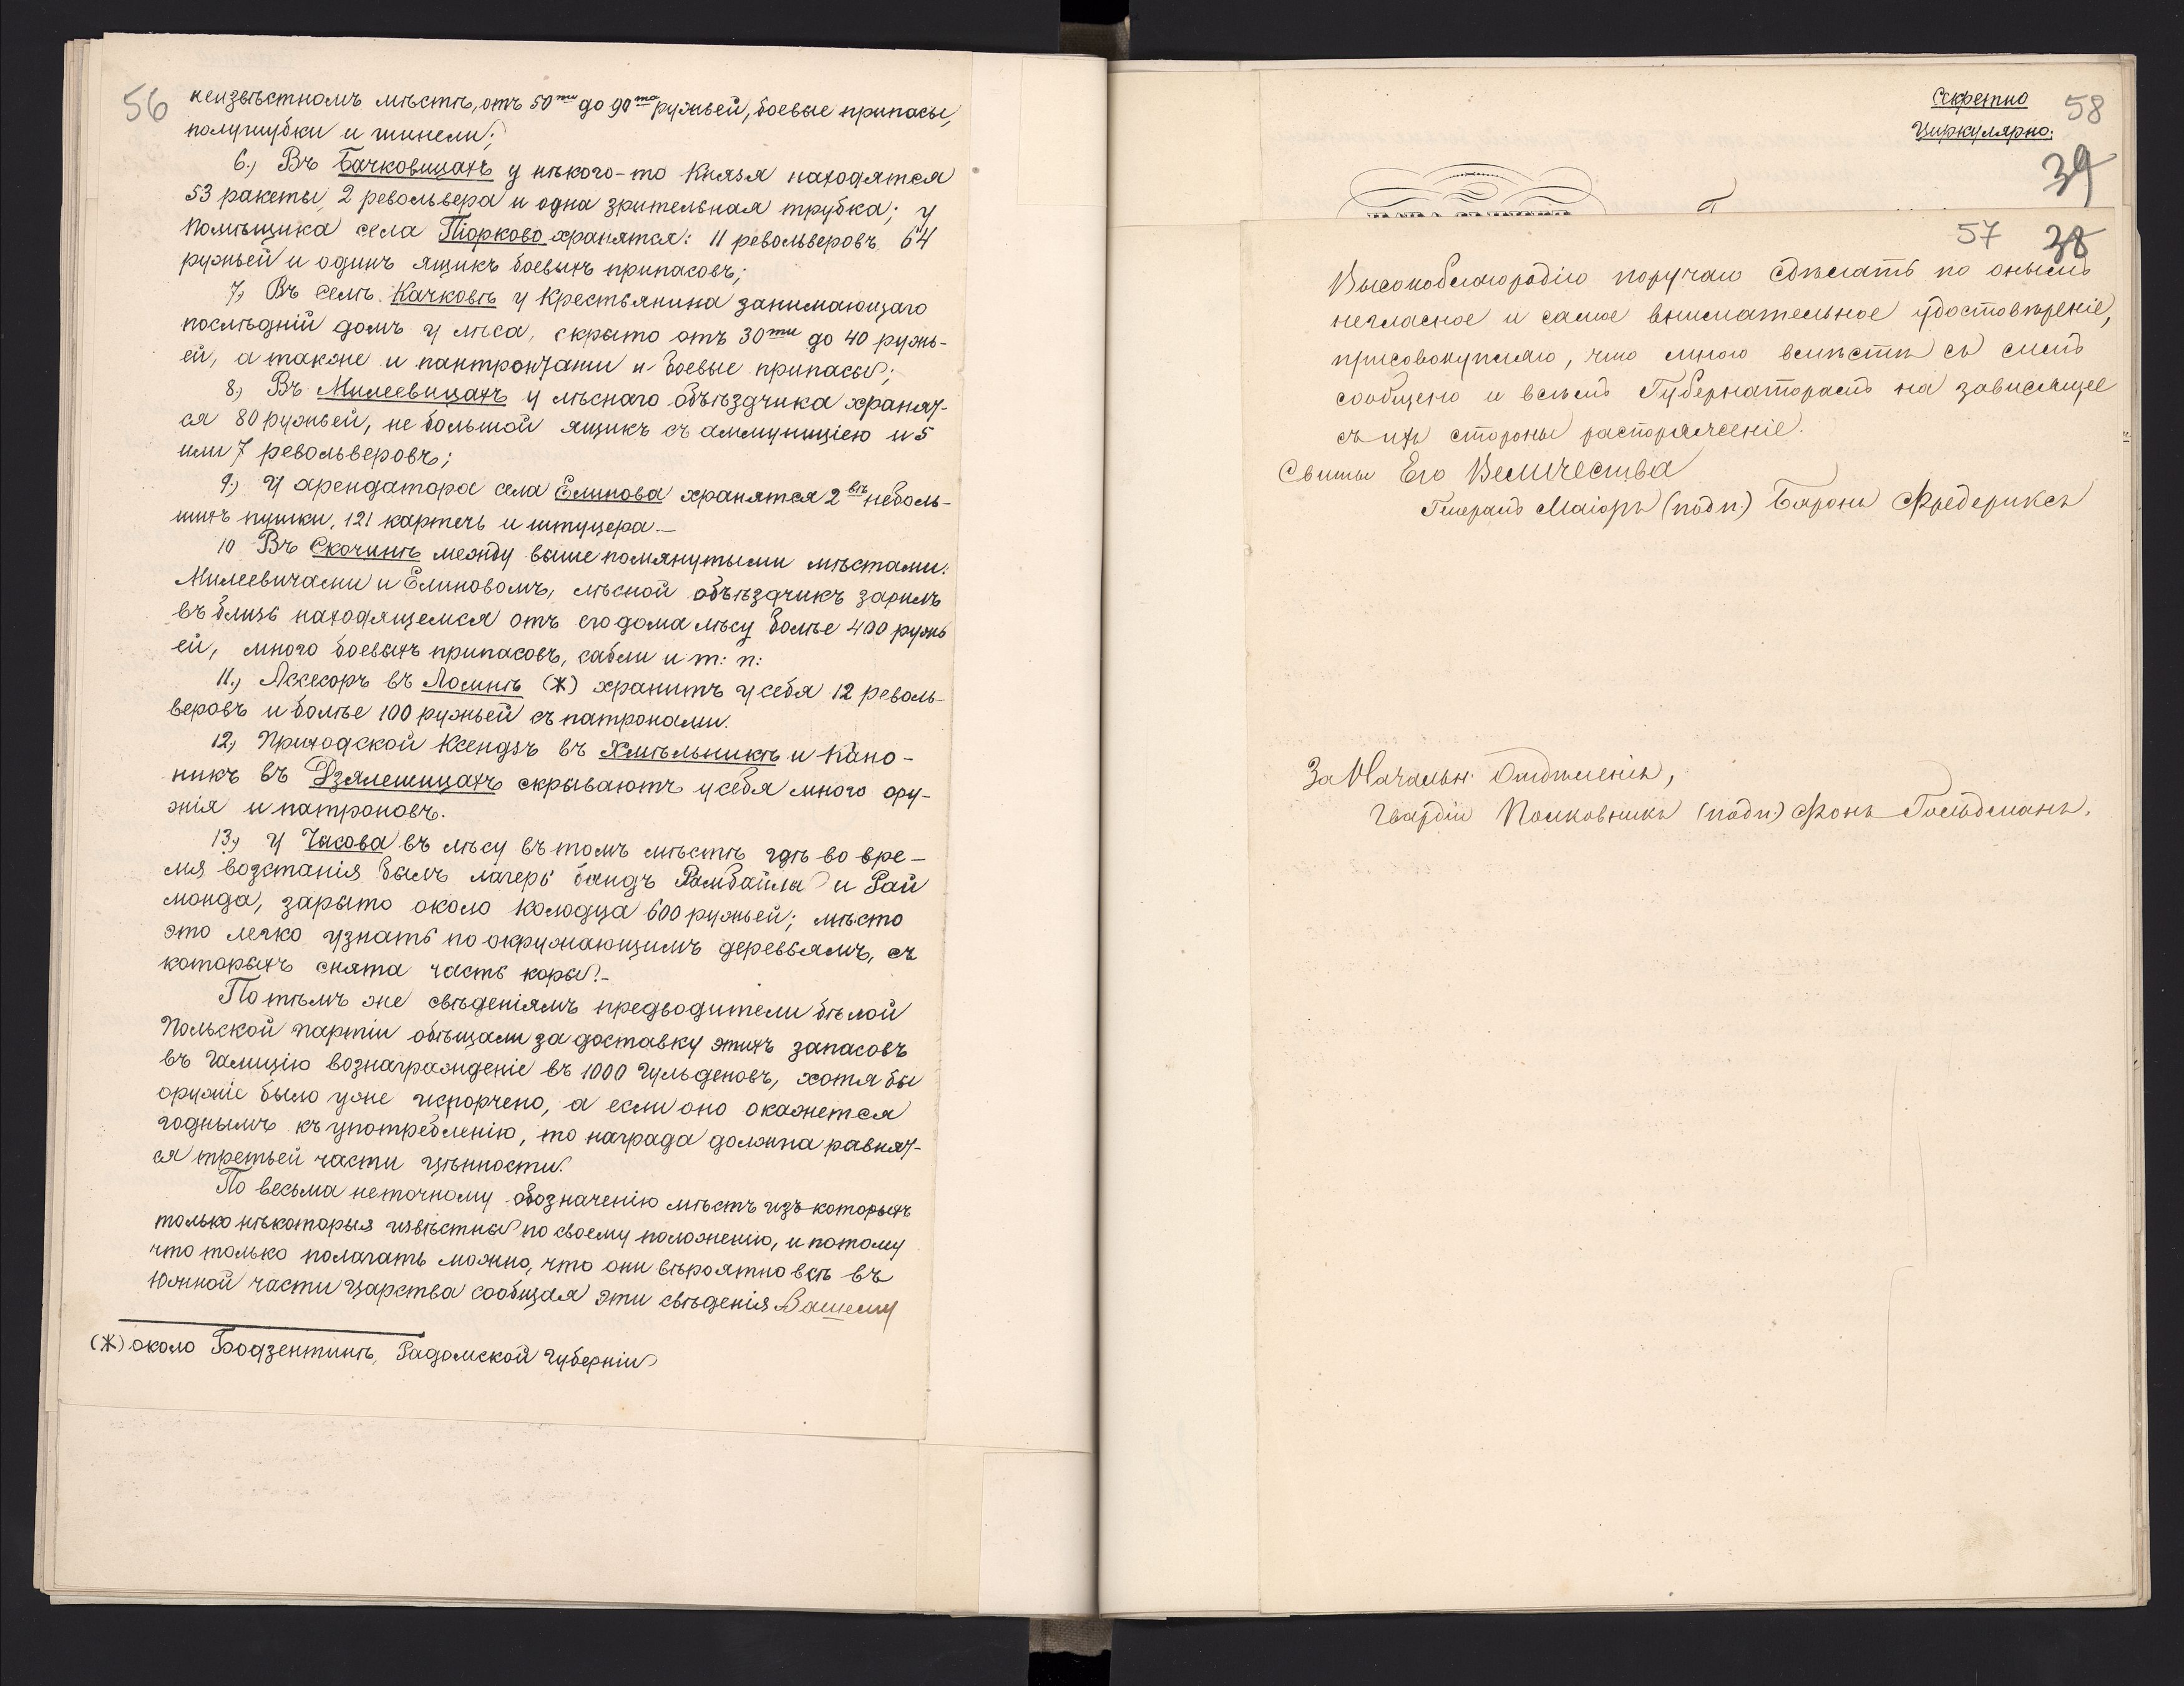 56
неизвѣстномъ мѣстѣ, отъ 50ти до 90та ружьей, боевые припасы,
полушубки и шинели;
6.) Въ Бачковицахъ у нѣкого-то Князя находятся
53 ракеты, 2 револьвера и одна зрительная трубка; у
помѣщика села Піорково хранятся: 11 револьверовъ, 64
ружьей и одинъ ящикъ боевыхъ припасовъ;
7) Въ селѣ Качковѣ у Крестьянина занимающаго
послѣдній домъ у лѣса, скрыто отъ 30ти до 40 ружь-
ей, а также и пантронташи и боевые припасы;
8) Въ Милеевицахъ у лѣснаго объѣздчика хранят-
ся 80 ружьей, не большой ящикъ съ аммуниціею и 5
или 7 револьверовъ;
9) У арендатора села Елинова хранятся 2вѣ неболь-
шихъ пушки, 121 картечь и штуцера.—
10 Въ Скочинѣ между выше помянутыми мѣстами:
Милеевичами и Елиновомъ, лѣсной объѣздчикъ зарылъ
въ близь находящемся отъ его дома лѣсу болѣе 400 ружь
ей, много боевыхъ припасовъ, сабли и т: п:
11.) Ассесоръ въ Ломнѣ (Ж) хранитъ у себя 12 револь-
веровъ и болѣе 100 ружьей съ патронами.
12) Приходской Ксендзъ въ Хмѣльникѣ и Кано-
никъ въ Дзялешицахъ скрываютъ у себя много ору-
жія и патроновъ.
13) У Часова въ лѣсу въ томъ мѣстѣ гдѣ во вре-
мя возстанія былъ лагерь бандъ Рамбайлы и Рай
монда, зарыто около колодца 600 ружьей; мѣсто
это легко узнать по окружающимъ деревьямъ, съ
которыхъ снята часть коры.—
По тѣмъ же свѣденіямъ предводители бѣлой
Польской партіи обѣщали за доставку этихъ запасовъ
въ Галицію вознагражденіе въ 1000 Гульденовъ, хотя бы
оружіе было уже испорчено, а если оно окажется
годнымъ къ употребленію, то награда должна равнят-
ся третьей части цѣнности.
По весьма неточному обозначенію мѣстъ изъ которыхъ
только нѣкоторыя извѣстны по своему положенію, и потому
что только полагать можно, что они вѣроятно всѣ въ
Южной части Царства сообщая эти свѣденія Вашему
(Ж) около Бодзентинѣ, Радомской Губерніи
Секретно
58
Циркулярно:
39
57 38
Высокоблагородію поручаю сдѣлать по онымъ
негласное и самое внимательное удостовѣреніе,
присовокупляю, что мною вмѣстѣ съ симъ
сообщено и всѣмъ Губернаторамъ на зависящее
съ ихъ стороны распоряженіе.
Свиты Его Величества
Генералъ Маіоръ (подп.) Баронъ Фредериксъ
За Начальн. Отдѣленія,
Гвардіи Полковникъ (подп.) Фонъ Гольдманъ.